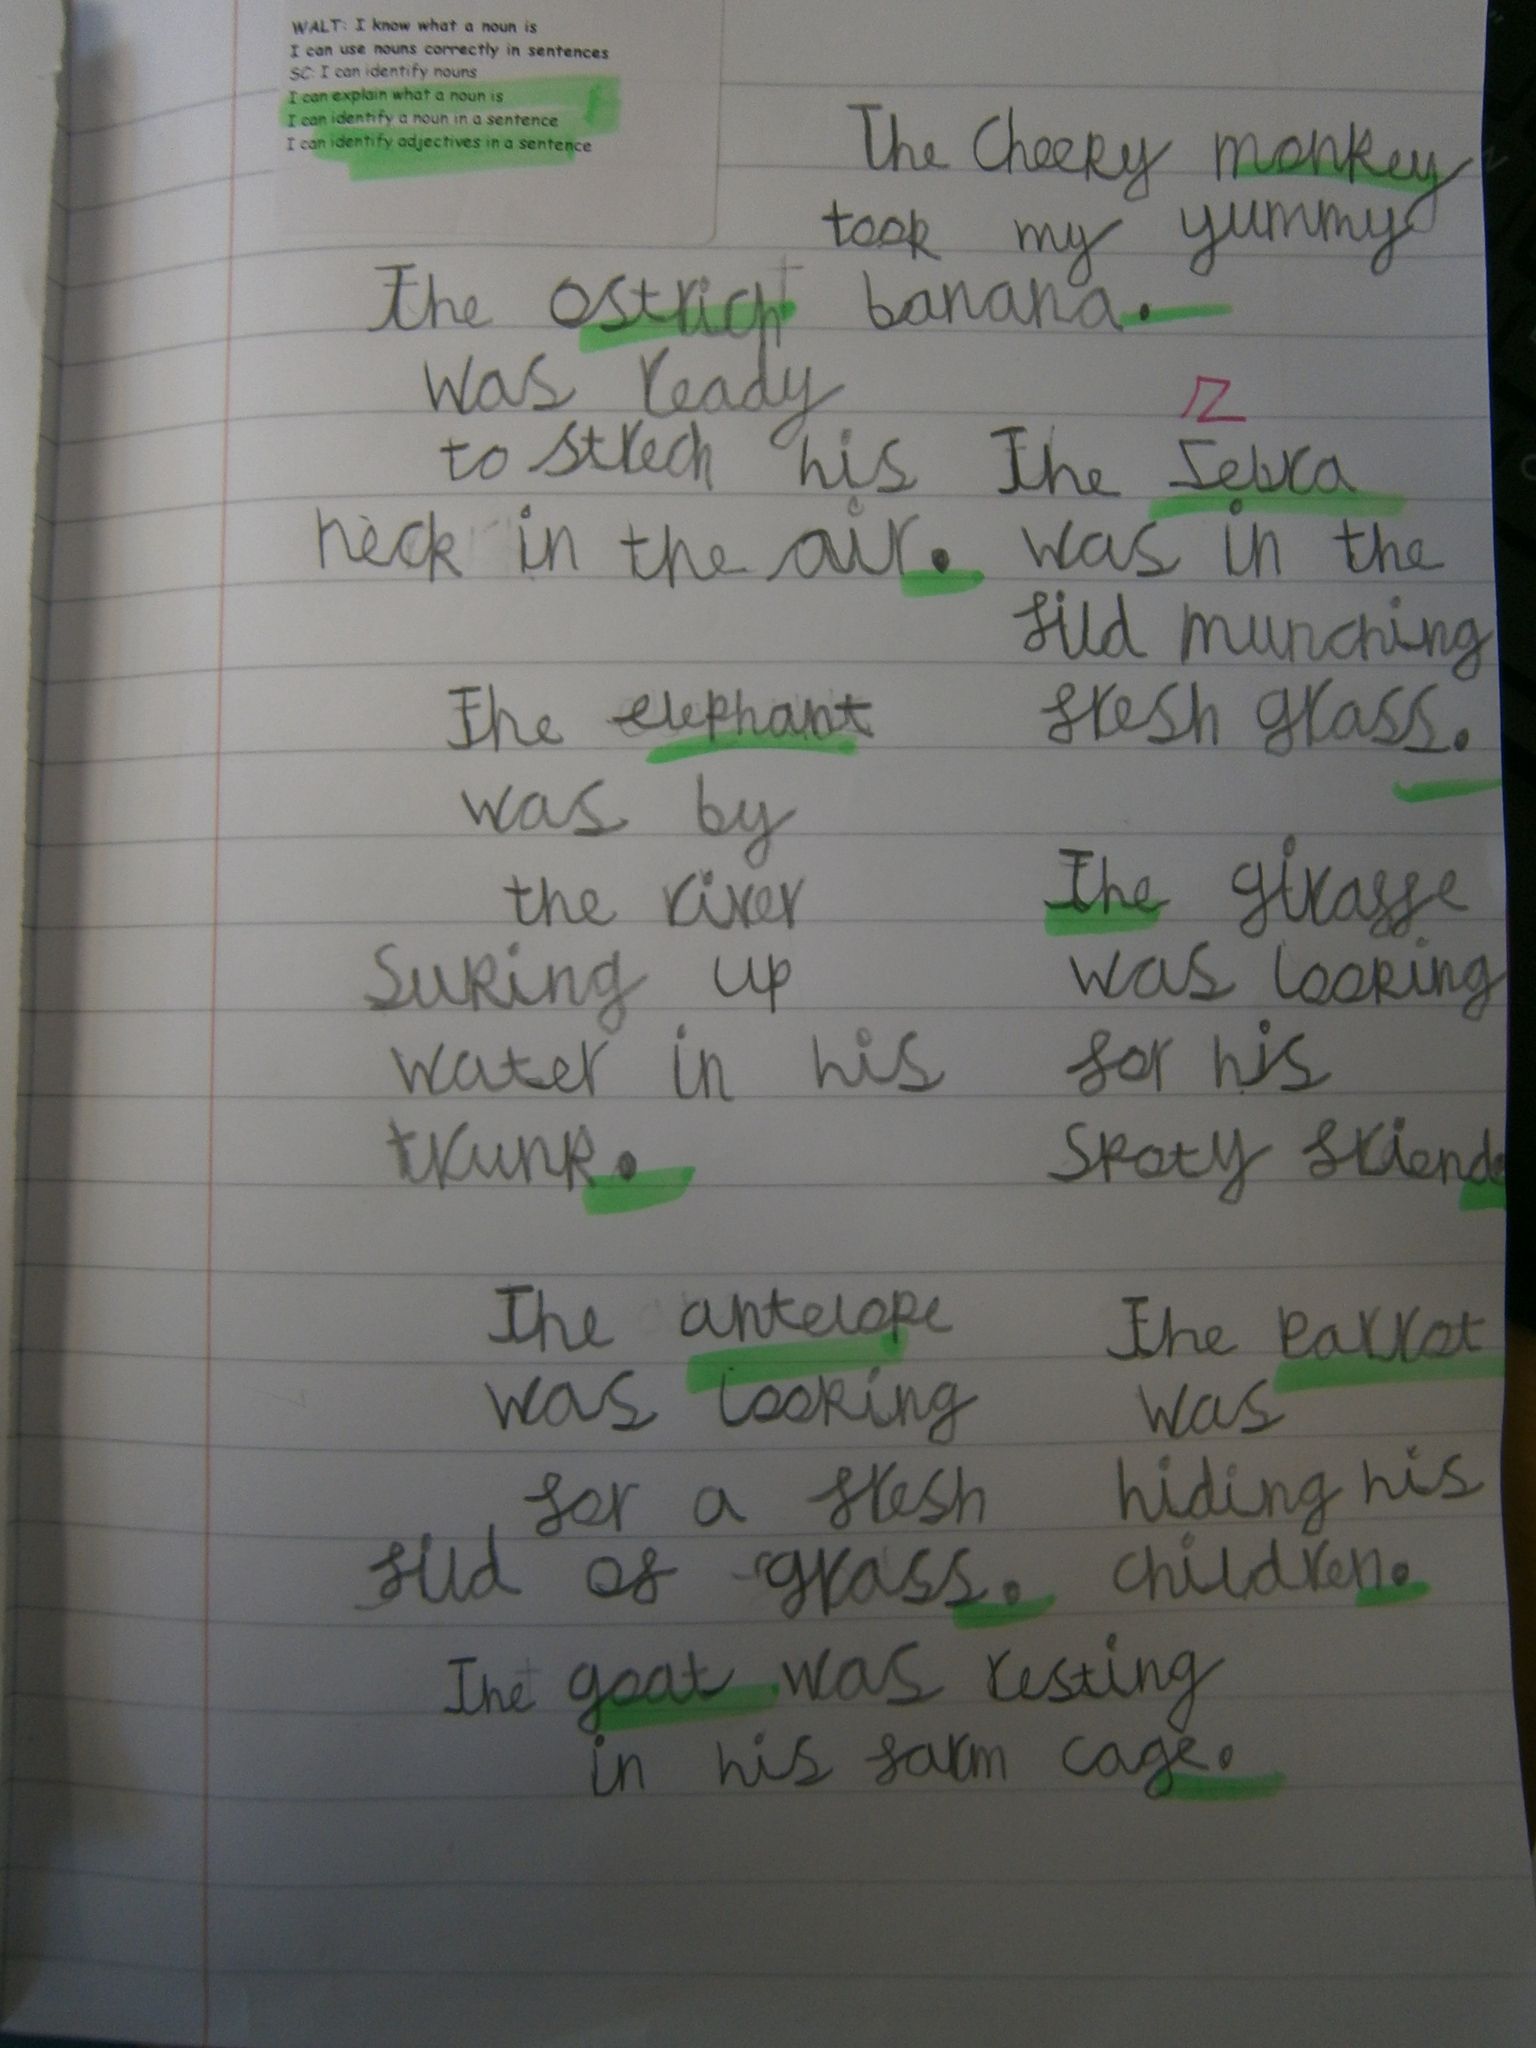 WALT: I know what a noun is
I can use nouns correctly in sentences
SC: I can identify nouns
I can explain what a noun is
I can identify a noun in a sentence
I can identify adjectives in a sentence
The Cheeky monkey
took my yummy
banana.
The ostrich
was ready
to strech his
neck in the air.
z
The Zebra
was in the
fild munching
fresh grass.
The elephant
was by
the river
Suking up
water in his
trunk.
The giraffe
was looking
for his
Spoty friend.
The antelope
was looking
for a fresh
fild of grass.
The parrot
was
hiding his
children.
The goat was resting
in his farm cage.